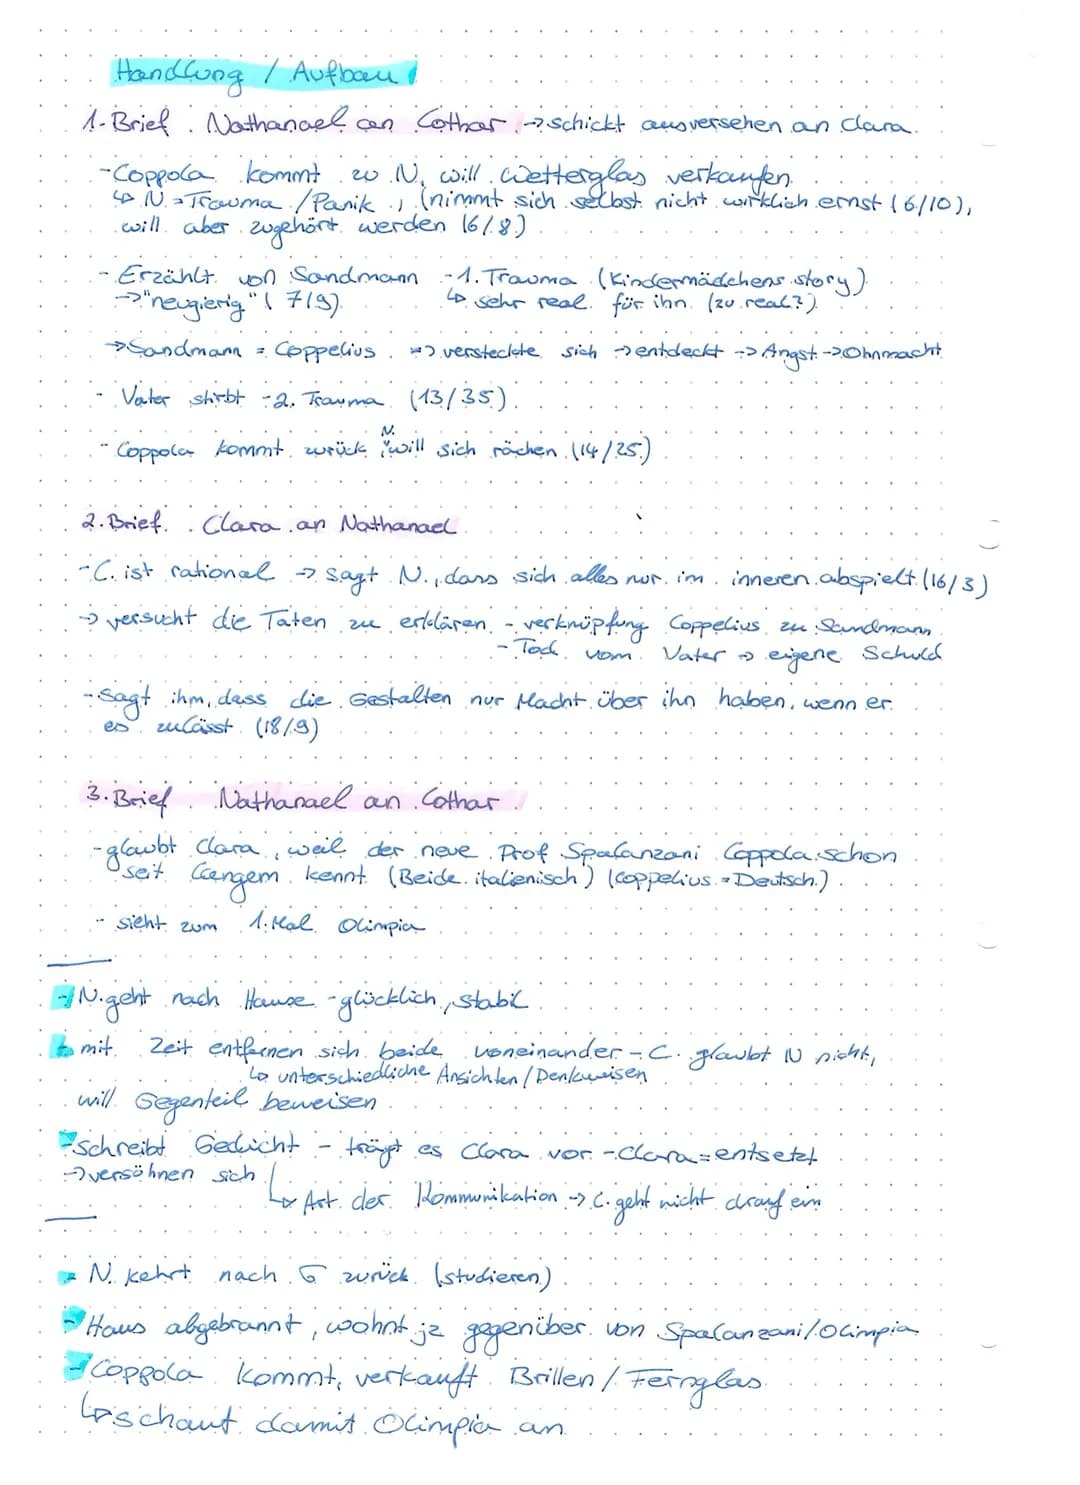 Handlung / Aufbau
1. Brief Nathanael an Lothar → schickt ausversehen an Clara
- Coppola kommt zu N, will Wetterglas verkaufen
↳ N. = Trauma / Panik, (nimmt sich selbst nicht wirklich ernst (6/10),
will aber zugehört werden (6/8)
- Erzählt von Sandmann - 1. Trauma (Kindermädchens story)
→ "neugierig" (7/9) ↳ sehr real für ihn (zu real?)
→ Sandmann = Coppelius → versteckte sich → entdeckt → Angst → Ohnmacht
- Vater stirbt - 2. Trauma (13/35)
- Coppola kommt zurück, N. will sich rächen (14/25)
2. Brief Clara an Nathanael
- C. ist rational → sagt N., dass sich alles nur im inneren abspielt (16/3)
→ versucht die Taten zu erklären - verknüpfung Coppelius zu Sandmann
- Tod vom Vater → eigene Schuld
- sagt ihm, dass die Gestalten nur Macht über ihn haben, wenn er
es zulässt (18/9)
3. Brief Nathanael an Lothar
- glaubt Clara, weil der neue Prof Spalanzani Coppola schon
seit langem kennt (Beide italienisch) (Coppelius = Deutsch)
- sieht zum 1. Mal Olimpia
- N. geht nach Hause - glücklich, stabil
↳ mit Zeit entfernen sich beide voneinander - C. glaubt N nicht,
↳ unterschiedliche Ansichten / Denkweisen
will Gegenteil beweisen
- schreibt Gedicht - trägt es Clara vor - Clara = entsetzt
→ versöhnen sich
↳ Art der Kommunikation → C. geht nicht drauf ein
- N. kehrt nach G zurück (studieren)
- Haus abgebrannt, wohnt jz gegenüber von Spalanzani/Olimpia
- Coppola kommt, verkauft Brillen / Fernglas
↳ schaut damit Olimpia an